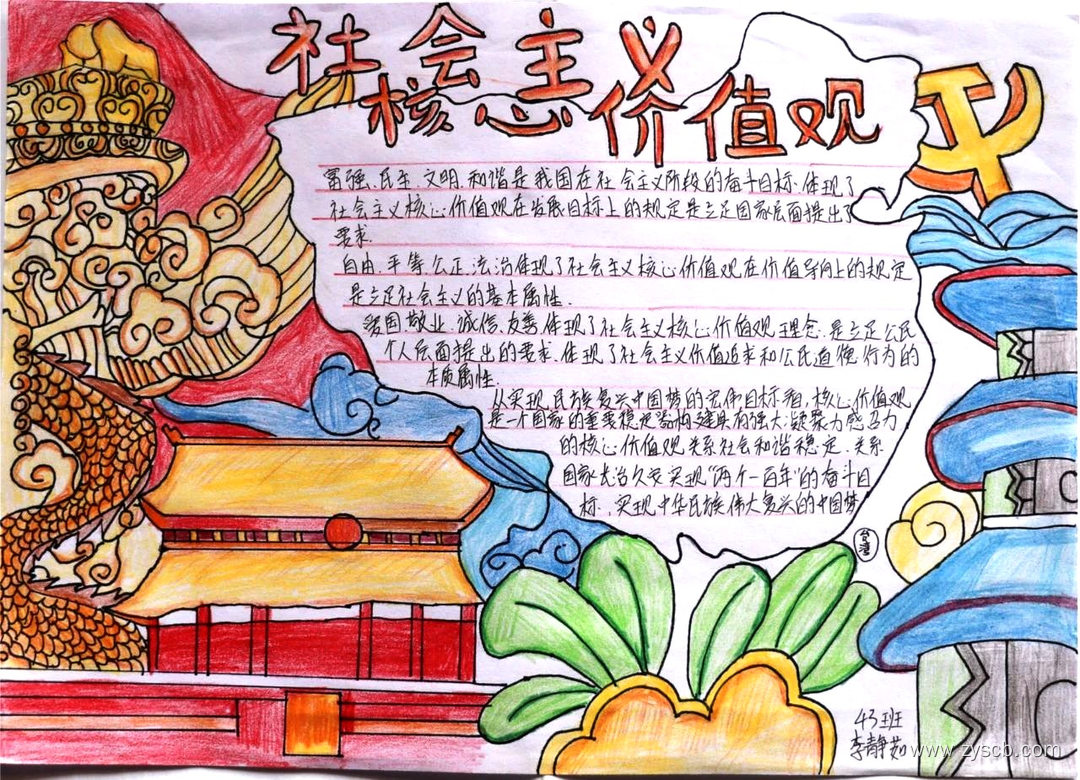 社会主义
核心价值观
富强、民主、文明、和谐是我国在社会主义阶段的奋斗目标.体现了
社会主义核心价值观在发展目标上的规定是立足国家层面提出了
要求.
自由.平等.公正.法治体现了社会主义核心价值观在价值导向上的规定
是立足社会主义的基本属性.
爱国敬业.诚信.友善体现了社会主义核心价值观理念.是立足公民
个人层面提出的要求.体现了社会主义价值追求和公民道德行为的
本质属性.
从实现民族复兴中国梦的宏伟目标看,核心价值观
是一个国家的重要稳定器构建具有强大凝聚力感召力
的核心价值观关系社会和谐稳定.关系
国家长治久安实现"两个一百年"的奋斗目
标,实现中华民族伟大复兴的中国梦
台湾
43班
李静茹
www.zyscb.com